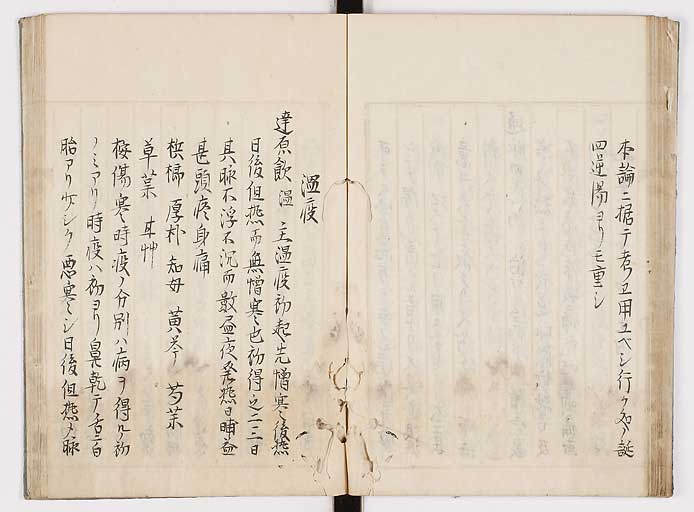 本論ニ据テ考ヱ用ユベシ行ク処ノ証
四逆湯ヨリモ重シ
温疫
達原飲 温 主温疫初起先憎寒後熱
日後但熱而無憎寒也初得之二三日
其脉不浮不沉而数昼夜発熱日晡益
甚頭疼身痛
梹榔 厚朴 知母 黄芩 芍薬
草菓 甘艸
桉傷寒時疫ノ分別ハ病ヲ得ルノ初
ノミアリ時疫ハ初ヨリ鼻乾テ舌ニ白
胎アリ少シク悪寒シ日後但熱メ脉